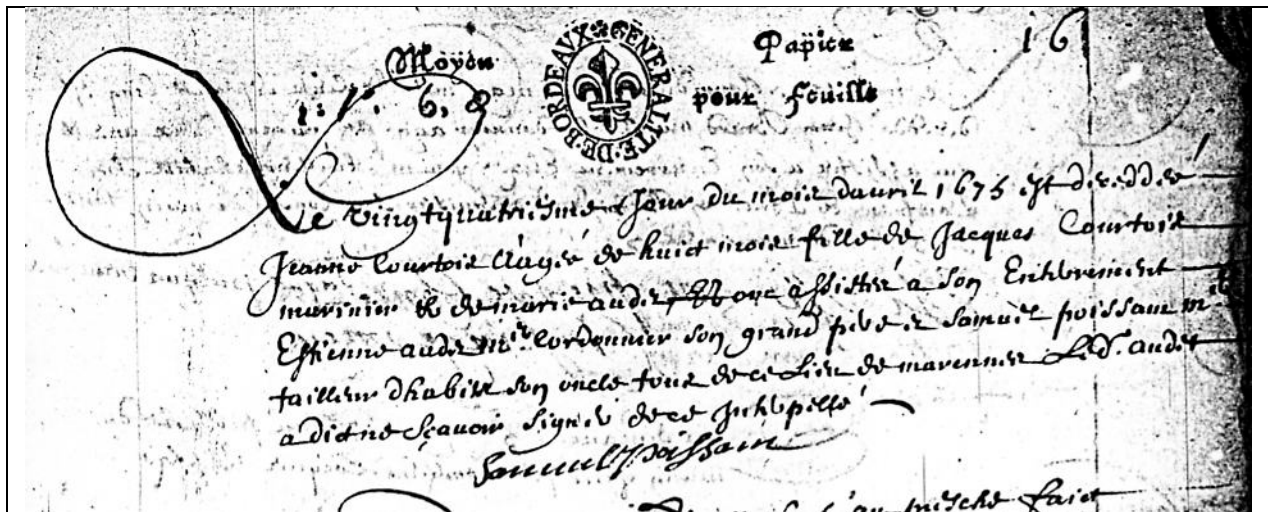 Moyen
Papier
16
GENERALITE·DE·BORDEAUX
pour feuille
Le vingtquatriesme Jour du mois dauril 1675 est deceddée
Jeanne Courtois aagée de huict mois fille de Jacques Courtois
marinier & de marie audet, Et ont assisté a son Enterrement
Estienne audet mre Cordonnier son grand pere et Samuel poissant mre
tailleur dhabits son oncle tous de ce Lieu de marennes Led. audet
a dict ne sçauoir signer de ce Interpellé
Samuel Poissant
faict